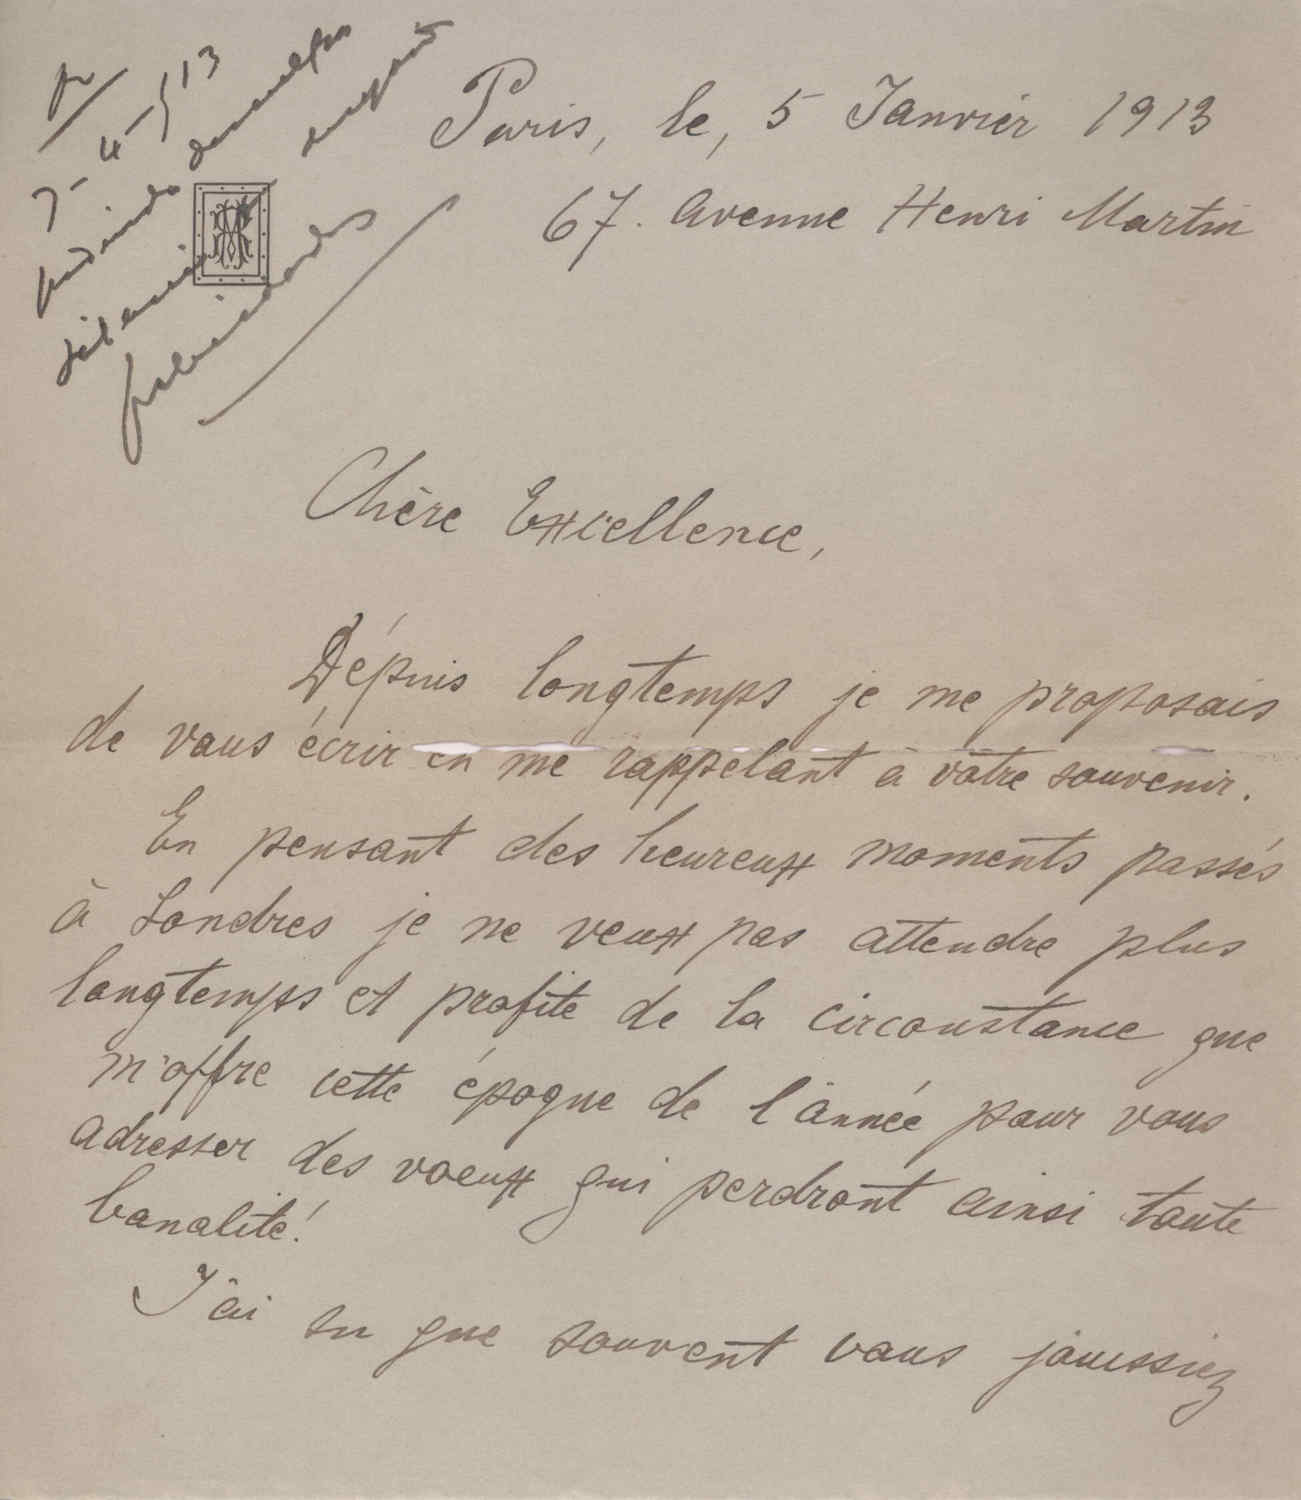 Paris, le, 5 Janvier 1913
67. Avenue Henri Martin
Chère Excellence,
Dépuis longtemps je me proposais
de vous écrir en me rappelant à vôtre souvenir.
En pensant des heureux moments passés
à Londres je ne veux pas attendre plus
longtemps et profite de la circonstance que
m'offre cette époque de l'année pour vous
adresser des voeux qui perdront ainsi toute
banalité!
J'ai su que souvent vous jouissiez